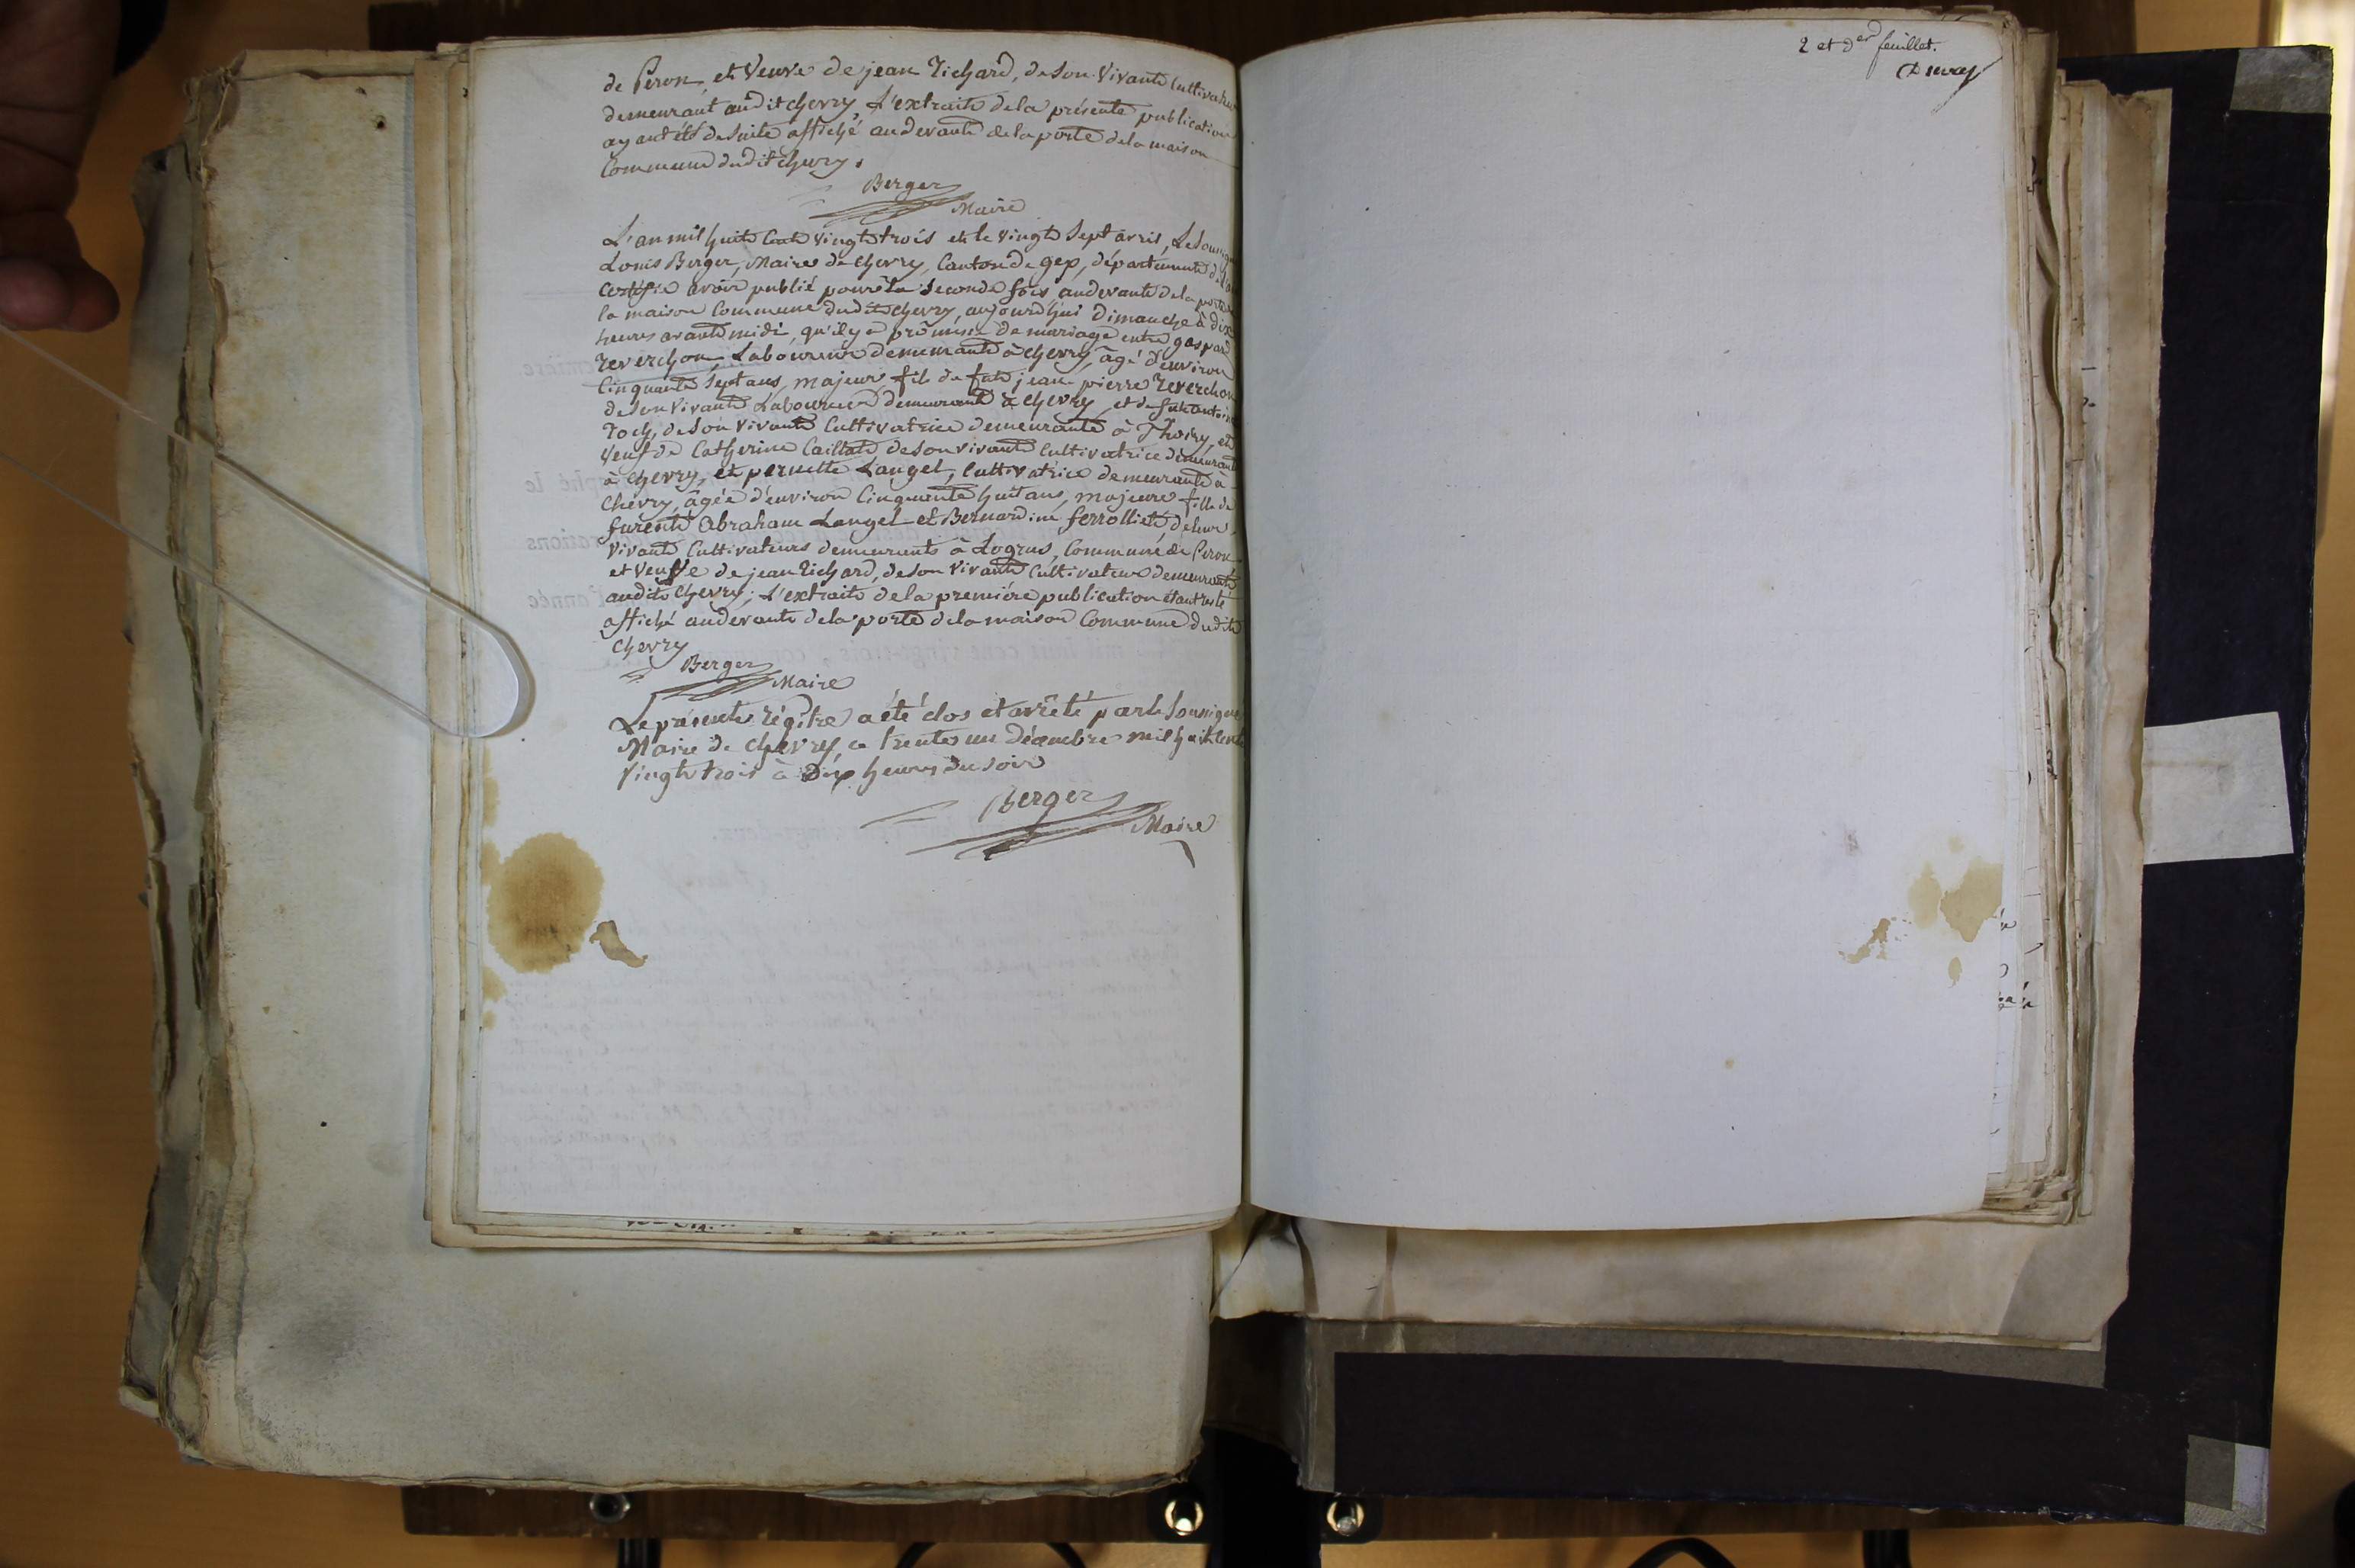 de Péron, et Veuve de jean Richard, de Son Vivant Cultivateur
demeurant audit chevry, L'extrait de la présente publication
ayant été de Suite affiché audevant de la porte de la maison
Commune dudit chevry.
Berger
Maire
L'an mil huit Cent vingt trois et le vingt Sept avril, Le Soussigné
Louis Berger, Maire de Chevry, Canton de gex, département de l'ain
Certifie avoir publié pour la Seconde fois audevant de la porte de
la maison Commune dudit chevry, aujourd'hui Dimanche à dix
heures avant midi, qu'il y a promesse de mariage entre gaspard
Reverchon, Laboureur demeurant à chevry, âgé d'environ
Cinquante Sept ans, majeur fils de feu jean pierre Reverchon
de Son Vivant Laboureur demeurant à chevry, et de
Roch, de Son Vivant Cultivatrice demeurante à Thoiry, et
Veuf de Catherine Caillat de Son vivant Cultivatrice demeurant
à Chevry, et pernette Langel, Cultivatrice demeurante à
Chevry, âgée d'environ Cinquante huit ans, majeure fille de
furent Abraham Langel et Bernardine ferrolliet, de leur
Vivant Cultivateurs demeurants à Logras, Commune de Péron
et Veuve de jean Richard, de Son Vivant Cultivateur demeurant
audit Chevry; L'extrait de la première publication étant resté
affiché audevant de la porte de la maison Commune dudit
Chevry
Berger
Maire
Le présent régitre a été clos et arrêté par le Soussigné
Maire de chevry, ce trente un décembre mil huit Cent
Vingt trois à Dix heures du soir
Berger
Maire
2 et der feuillet.